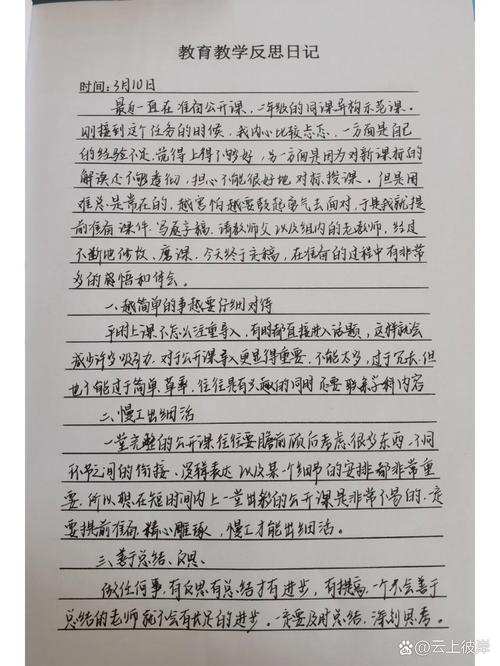 教育教学反思日记
时间:3月10日
最近一直在准备公开课,二年级的同课异构示范课。
刚接到这个任务的时候,我内心比较忐忑,一方面是自己
的经验不足,觉得上得不够好,另一方面是因为对新课标的
解读还不够透彻,担心不能很好地对标授课。但是困
难总是常在的,越害怕越要鼓起勇气去面对,于是我就提
前准备课件、写逐字稿,请教师父以及组内的老教师,经过
不断地修改、磨课,今天终于定稿,在准备的过程中有非常
多的感悟和体会。
一、越简单的事越要仔细对待
平时上课不怎么注重导入,有时都直接进入话题,这样就会
减少许多吸引力,对于公开课导入更显得重要,不能太多,过于冗长,但
也不能过于简单、草率,往往是有兴趣的同时还要联系学科内容
二、慢工出细活
一堂完整的公开课往往要瞻前顾后考虑很多东西,不同
环节之间的衔接、没稿表达以及某个细节的安排都非常重
要,所以想在短时间内上一堂出彩的公开课是非常不易的,一定
要提前准备,精心雕琢,慢工才能出细活。
三、善于总结、反思
做任何事,有反思有总结才有进步,有提高,一个不会善于
总结的老师就不会有长足的进步。一定要及时总结,深刻思考。
@云上彼岸